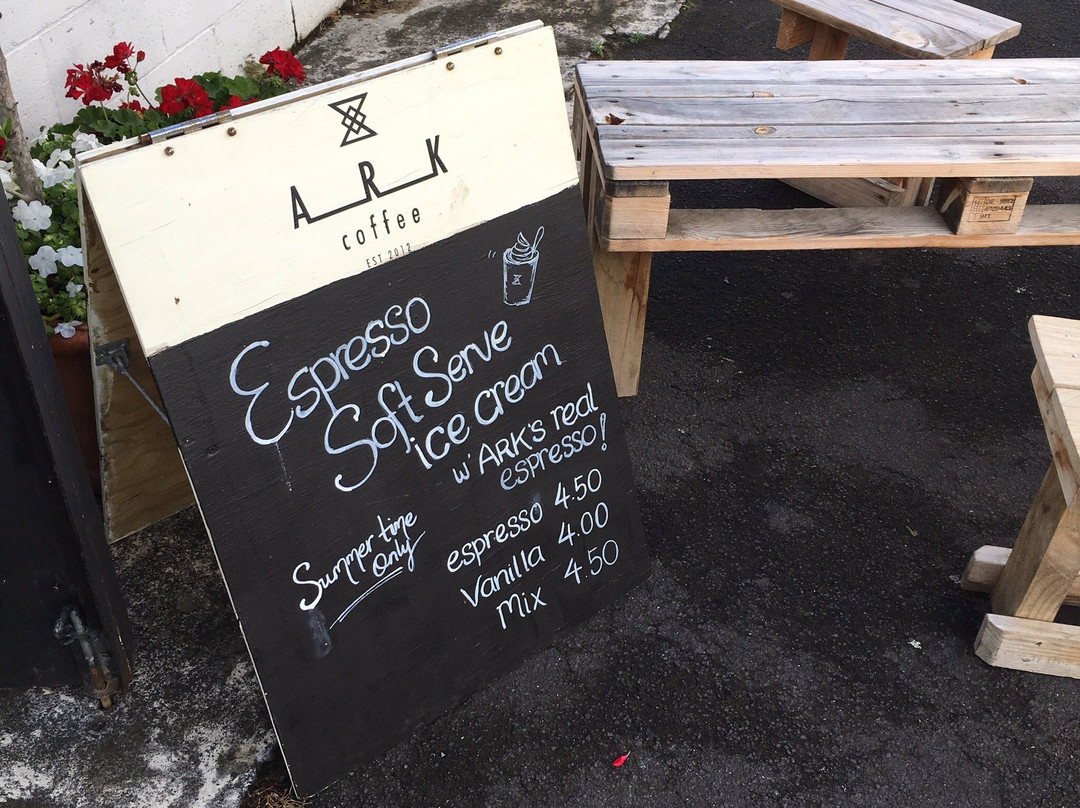 ARK
coffee
EST 2012
Espresso
Soft Serve
ice cream
w' ARK'S real
espresso!
Summer time
Only
espresso 4.50
Vanilla 4.00
Mix 4.50